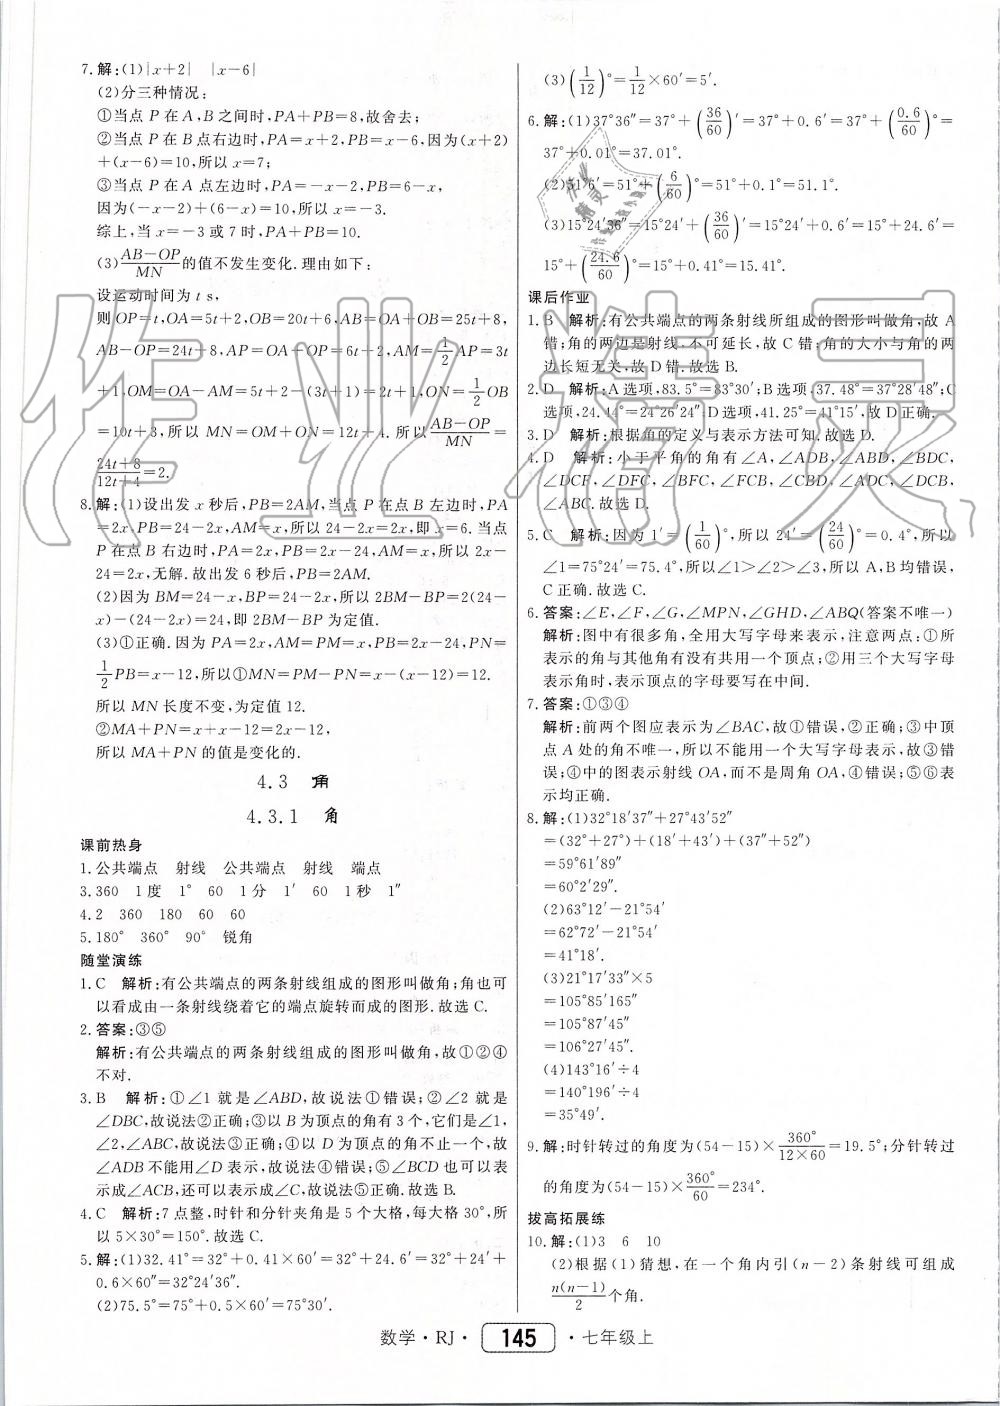 7.解:(1)|x+2| |x-6|
(2)分三种情况:
①当点 P 在 A,B 之间时,PA+PB=8,故舍去;
②当点 P 在 B 点右边时,PA=x+2,PB=x-6,因为(x+2)
+(x-6)=10,所以 x=7;
③当点 P 在 A 点左边时,PA=-x-2,PB=6-x,
因为(-x-2)+(6-x)=10,所以 x=-3.
综上,当 x=-3 或 7 时,PA+PB=10.
(3)\frac{AB-OP}{MN}的值不发生变化.理由如下:
设运动时间为 t s,
则 OP=t,OA=5t+2,OB=20t+6,AB=OA+OB=25t+8,
AB-OP=24t+8,AP=OA+OP=6t+2,AM=\frac{1}{2}AP=3t
+1,OM=OA-AM=5t+2-(3t+1)=2t+1,ON=\frac{1}{2}OB
=10t+3,所以 MN=OM+ON=12t+4.所以\frac{AB-OP}{MN}=
\frac{24t+8}{12t+4}=2.
8.解:(1)设出发 x 秒后,PB=2AM,当点 P 在点 B 左边时,PA
=2x,PB=24-2x,AM=x,所以 24-2x=2x,即 x=6.当点
P 在点 B 右边时,PA=2x,PB=2x-24,AM=x,所以 2x-
24=2x,无解.故出发 6 秒后,PB=2AM.
(2)因为 BM=24-x,BP=24-2x,所以 2BM-BP=2(24-
x)-(24-2x)=24,即 2BM-BP 为定值.
(3)①正确.因为 PA=2x,AM=PM=x,PB=2x-24,PN=
\frac{1}{2}PB=x-12,所以①MN=PM-PN=x-(x-12)=12.
所以 MN 长度不变,为定值 12.
②MA+PN=x+x-12=2x-12,
所以 MA+PN 的值是变化的.
4.3 角
4.3.1 角
课前热身
1.公共端点 射线 公共端点 射线 端点
3.360 1度 1° 60 1分 1′ 60 1秒 1″
4.2 360 180 60 60
5.180° 360° 90° 锐角
随堂演练
1.C 解析:有公共端点的两条射线组成的图形叫做角;角也可
以看成由一条射线绕着它的端点旋转而成的图形.故选 C.
2.答案:③⑤
解析:有公共端点的两条射线组成的图形叫做角,故①②④
不对.
3.B 解析:①∠1 就是∠ABD,故说法①错误;②∠2 就是
∠DBC,故说法②正确;③以 B 为顶点的角有 3 个,它们是∠1,
∠2,∠ABC,故说法③正确;④以 D 为顶点的角不止一个,故
∠ADB 不能用∠D 表示,故说法④错误;⑤∠BCD 也可以表
示成∠ACB,还可以表示成∠C,故说法⑤正确.故选 B.
4.C 解析:7 点整,时针和分针夹角是 5 个大格,每大格 30°,所
以 5×30°=150°.故选 C.
5.解:(1)32.41°=32°+0.41×60′=32°+24.6′=32°+24′+
0.6×60″=32°24′36″.
(2)75.5°=75°+0.5×60′=75°30′.
(3)(\frac{1}{12})°=\frac{1}{12}×60′=5′.
6.解:(1)37°36″=37°+(\frac{36}{60})′=37°+0.6′=37°+(\frac{0.6}{60})°=
37°+0.01°=37.01°.
(2)51°6′=51°+(\frac{6}{60})°=51°+0.1°=51.1°.
(3)15°24′36″=15°24′+(\frac{36}{60})′=15°24′+0.6′=15°+24.6′=
15°+(\frac{24.6}{60})°=15°+0.41°=15.41°.
课后作业
1.B 解析:有公共端点的两条射线所组成的图形叫做角,故 A
错;角的两边是射线,不可延长,故 C 错;角的大小与角的两
边长短无关,故 D 错.故选 B.
2.D 解析:A 选项,83.5°=83°30′;B 选项,37.48°=37°28′48″;C
选项,24.44°=24°26′24″;D 选项,41.25°=41°15′,故 D 正确.
3.D 解析:根据角的定义与表示方法可知.故选 D.
4.D 解析:小于平角的角有∠A,∠ADB,∠ABD,∠BDC,
∠DCF,∠DFC,∠BFC,∠FCB,∠CBD,∠ADC,∠DCB,
∠ABC.故选 D.
5.C 解析:因为 1′=(\frac{1}{60})°,所以 24′=(\frac{24}{60})°=0.4°,所以
∠1=75°24′=75.4°,所以∠1>∠2>∠3,所以 A,B 均错误,
C 正确.故选 C.
6.答案:∠E,∠F,∠G,∠MPN,∠GHD,∠ABQ(答案不唯一)
解析:图中有很多角,全用大写字母来表示,注意两点:①所
表示的角与其他角有没有共用一个顶点;②用三个大写字母
表示角时,表示顶点的字母要写在中间.
7.答案:①③④
解析:前两个图应表示为∠BAC,故①错误,②正确;③中顶
点 A 处的角不唯一,所以不能用一个大写字母表示,故③错
误;④中的图表示射线 OA,而不是周角 OA,④错误;⑤⑥表
示均正确.
8.解:(1)32°18′37″+27°43′52″
=(32°+27°)+(18′+43′)+(37″+52″)
=59°61′89″
=60°2′29″.
(2)63°12′-21°54′
=62°72′-21°54′
=41°18′.
(3)21°17′33″×5
=105°85′165″
=105°87′45″
=106°27′45″.
(4)143°16′÷4
=140°196′÷4
=35°49′.
9.解:时针转过的角度为(54-15)×\frac{360°}{12×60}=19.5°;分针转过
的角度为(54-15)×\frac{360°}{60}=234°.
拔高拓展练
10.解:(1)3 6 10
(2)根据(1)猜想,在一个角内引(n-2)条射线可组成
\frac{n(n-1)}{2}个角.
数学·RJ· 145 ·七年级上
作业精灵